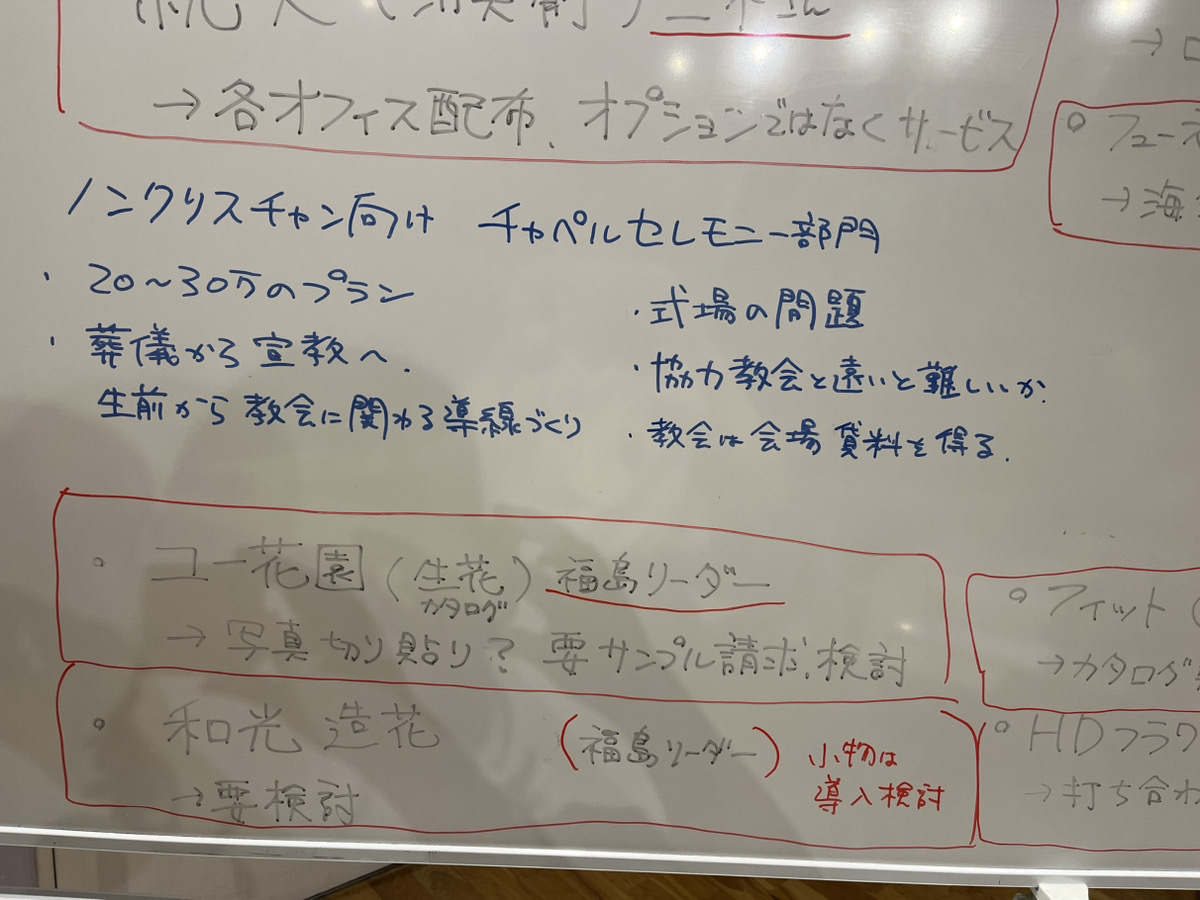 →各オフィス配布、オプションではなくサービス
ノンクリスチャン向け チャペルセレモニー部門
・20〜30万のプラン
・葬儀から宣教へ.
生前から教会に関わる導線づくり
・式場の問題
・協力教会と遠いと難しいか.
・教会は会場賃料を得る.
○ コー花園(生花)福島リーダー
カタログ
→写真切り貼り? 要サンプル請求.検討
○ 和光 造花 (福島リーダー) 小物は
導入検討
→要検討
○ フュー
→海
○ フィット(
→カタログ
○ HDフラワ
→打ち合わ